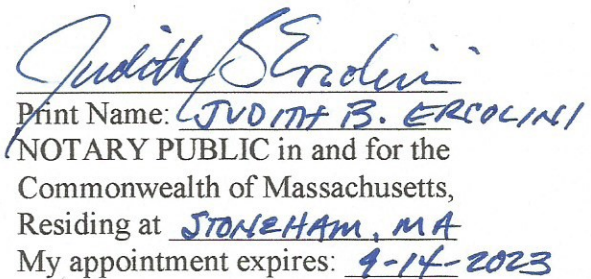 Judith B Ercolini
Print Name: JUDITH B. ERCOLINI
NOTARY PUBLIC in and for the
Commonwealth of Massachusetts,
Residing at STONEHAM, MA
My appointment expires: 9-14-2023